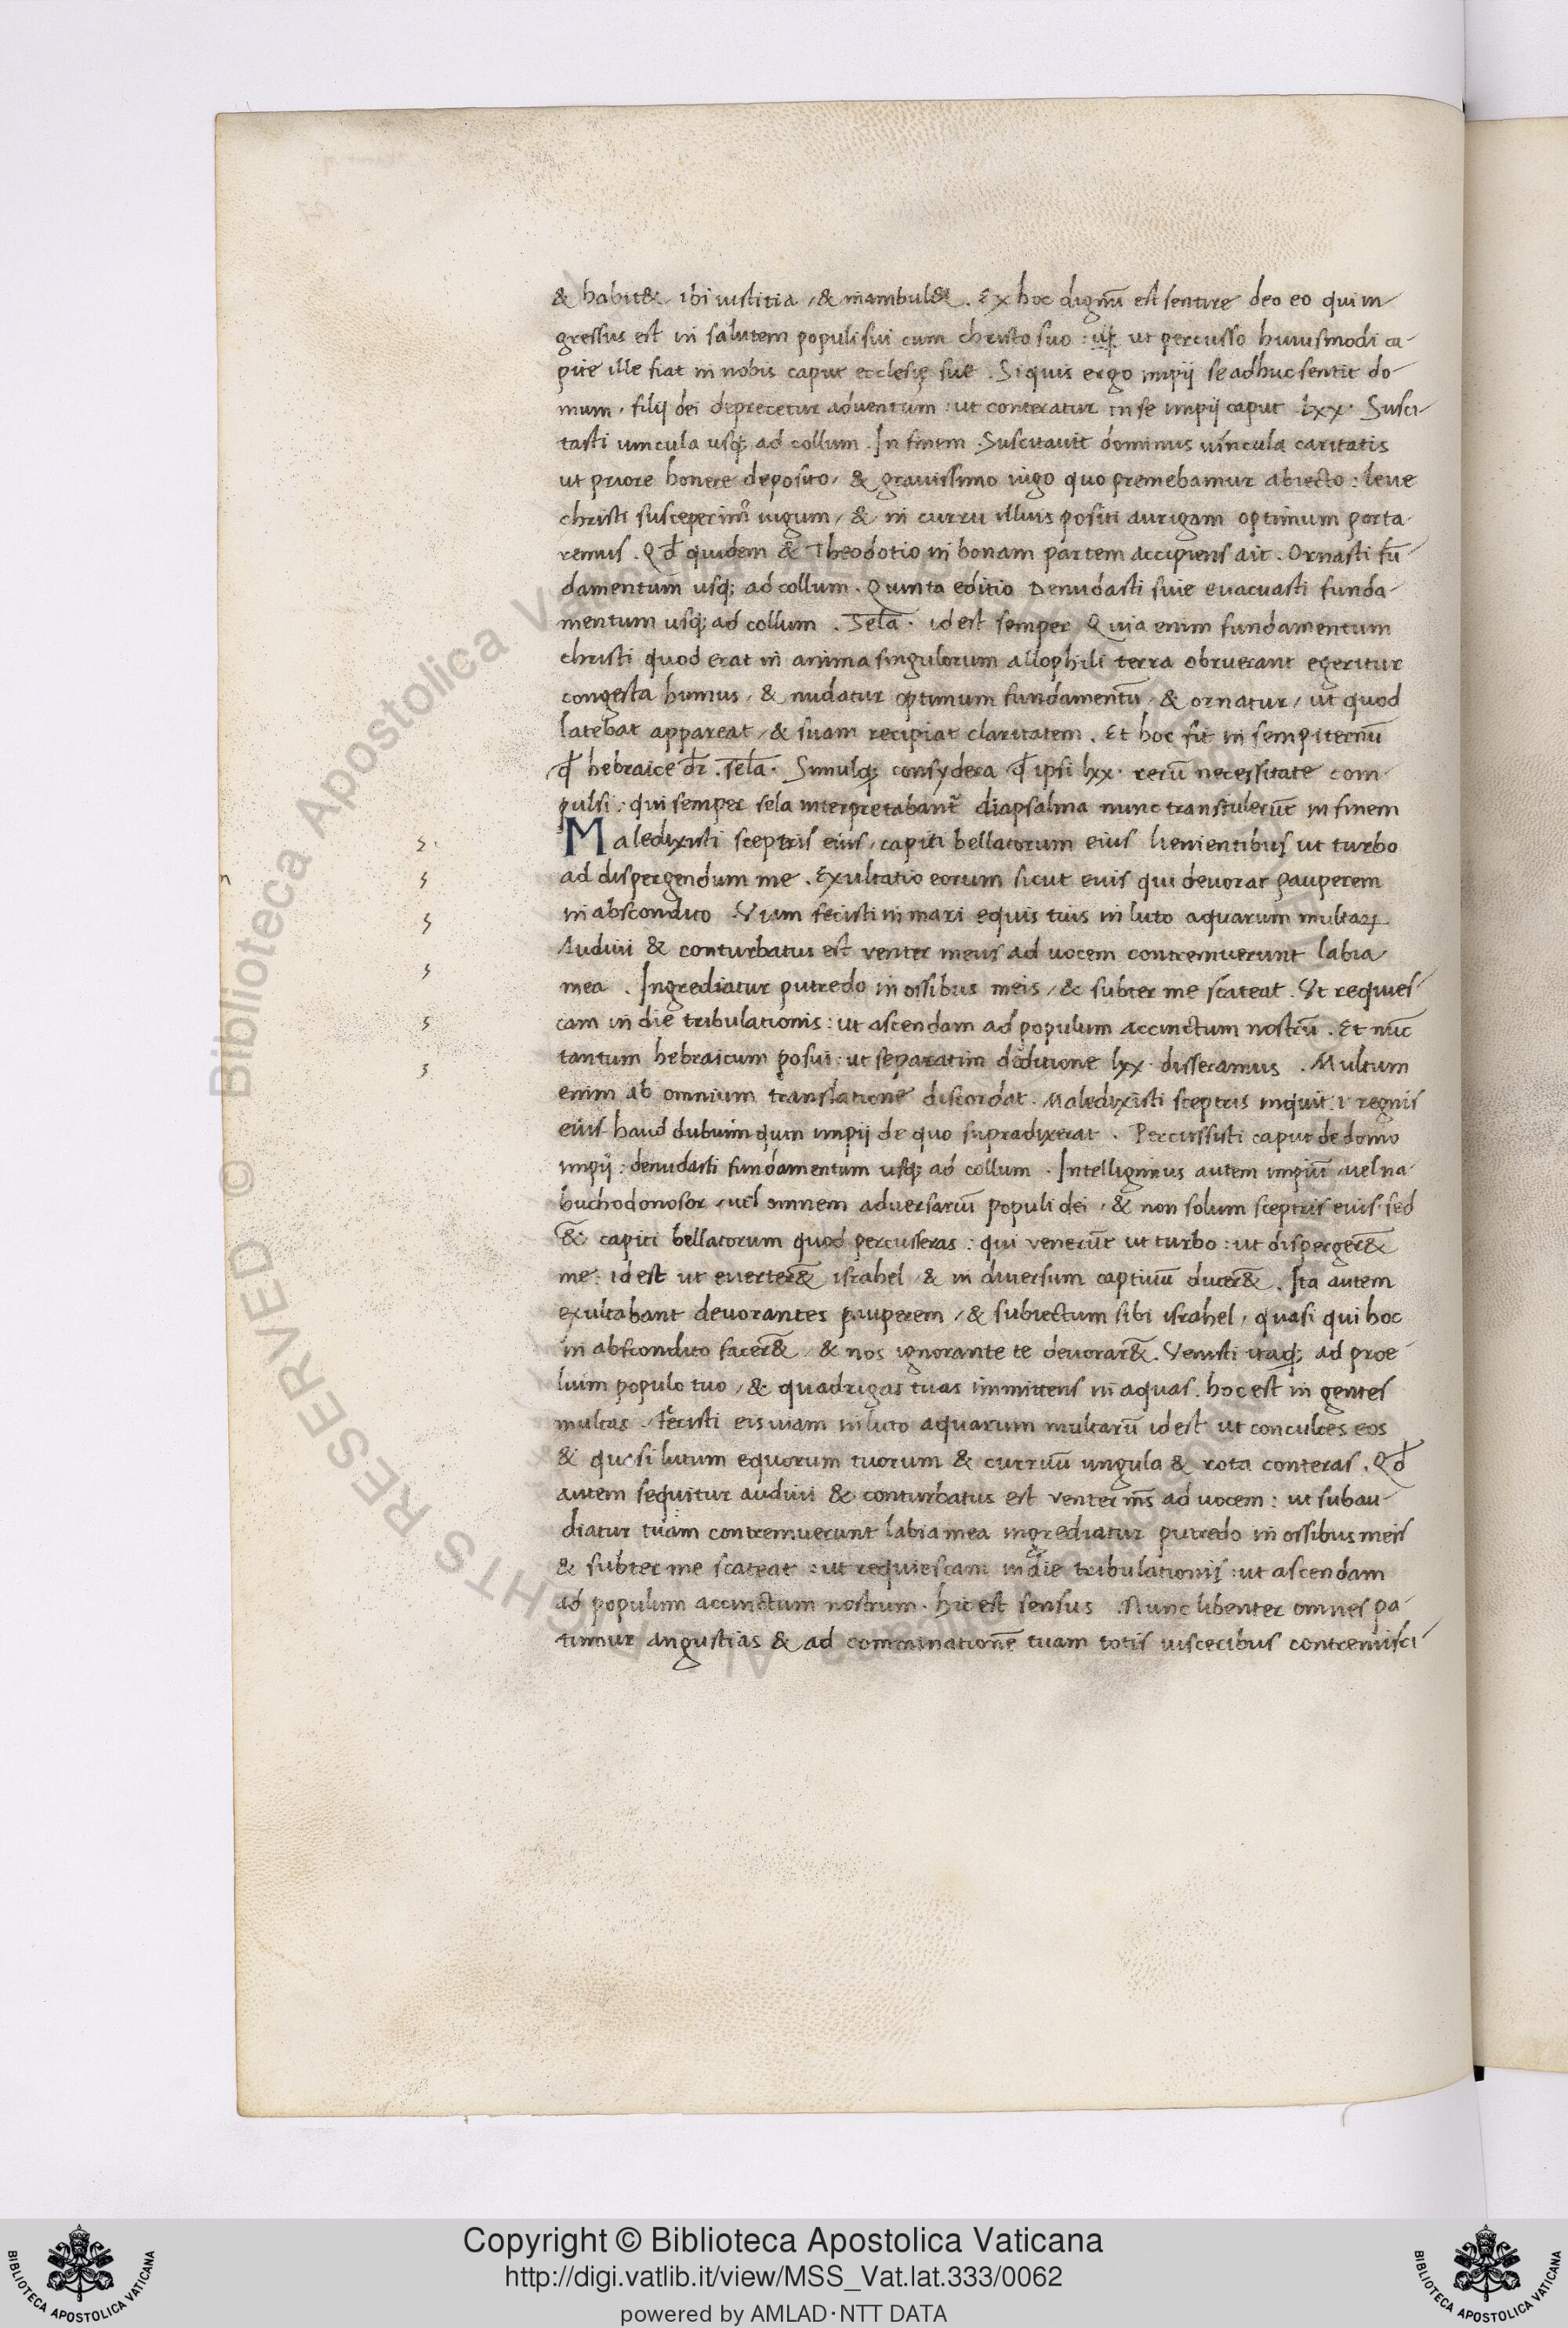 & habit& ibi iustitia, & inambul&. Ex hoc dignũ est sentire deo eo qui in
gressus est in salutem populi sui cum christo suo: ut percusso huiusmodi ca-
pite ille fiat in nobis caput ecclesię suę. Siquis ergo impij se adhuc sentit do-
mum, filij dei deprecetur adventum: ut conteratur in se impij caput. lxx. Susci-
tasti vincula usq; ad collum. In finem. Suscitavit dominus vincula caritatis
ut priore honere deposito, & gravissimo iugo quo premebamur abiecto: leve
christi susceperim⁹ iugum, & in curru illius positi aurigam optimum porta-
remus. Qđ quidem & Theodotio in bonam partem accipiens ait. Ornasti fũ-
damentum usq; ad collum. Quinta editio Denudasti sive evacuasti funda-
mentum usq; ad collum. Sela. idest semper Quia enim fundamentum
christi quod erat in anima singulorum allophili terra obruerant egeritur
congesta humus, & nudatur optimum fundamentũ, & ornatur, ut quod
latebat appareat, & suam recipiat claritatem. Et hoc fit in sempiternũ
qđ hebraice dr̄. sela. Simulq; consydera qđ ipsi lxx. rerũ necessitate com
pulsi: qui semper sela interpretabant̃ diapsalma nunc transtulerũt in finem
Maledixisti sceptris eius, capiti bellatorum eius venientibus ut turbo
ad dispergendum me. Exultatio eorum sicut euis qui devorat pauperem
in abscondito Viam fecisti in mari equis tuis in luto aquarum multaꝝ
Audivi & conturbatus est venter meus ad vocem contremuerunt labia
mea. Ingrediatur putredo in ossibus meis, & subter me scateat. Ut requies-
cam in die tribulationis: ut ascendam ad populum accinctum nostrũ. Et nũc
tantum hebraicum posui: ut separatim de editione lxx. disseramus. Multum
enim ab omnium translatione discordat. Maledixisti sceptris inquit .i. regnis
eius haud dubium quin impij de quo supra dixerat. Percussisti caput de domo
impij: denudasti fundamentum usq; ad collum. Intelligimus autem impiũ, vel na-
buchodonosor, vel omnem adversariũ populi dei, & non solum sceptris eius. sed
& capiti bellatorum quod percusseras: qui venerũt ut turbo: ut disperger&
me: idest ut everter& israhel, & in diversum captivũ ducer&. Ita autem
exultabant devorantes pauperem, & subiectum sibi israhel, quasi qui hoc
in abscondito facer&, & nos ignorante te devorar&. Venisti itaq; ad proe-
lium populo tuo, & quadrigas tuas immittens in aquas. hoc est in gentes
multas. Fecisti eis viam in luto aquarum multarũ idest ut conculces eos
& quasi lutum equorum tuorum & curruũ ungula & rota conteras. Qđ
autem sequitur audivi & conturbatus est venter m̃s ad vocem: ut subau-
diatur tuam contremuerunt labia mea ingrediatur putredo in ossibus meis
& subter me scateat: ut requiescam in die tribulationis: ut ascendam
ad populum accinctum nostrum. hic est sensus. Nunc libenter omnes pa-
timur angustias & ad comminationẽ tuam totis visceribus contremisci-
Copyright © Biblioteca Apostolica Vaticana
http://digi.vatlib.it/view/MSS_Vat.lat.333/0062
powered by AMLAD·NTT DATA
BIBLIOTECA APOSTOLICA VATICANA
BIBLIOTECA APOSTOLICA VATICANA